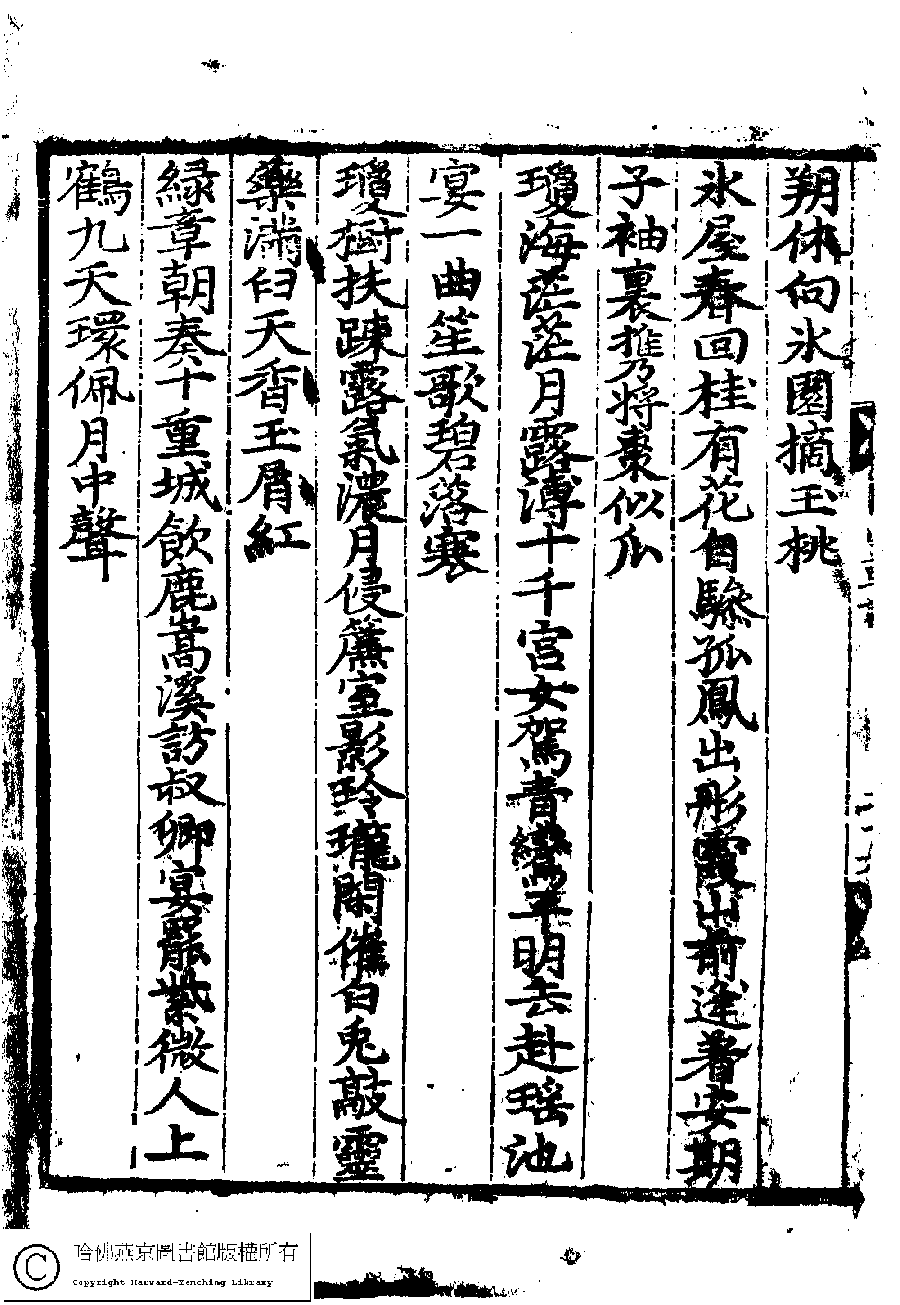 朔休向氷園摘玉桃
氷屋春回桂有花自驂孤鳳出彤霞出前逢着安期
子袖裏推將棗似瓜
瓊海茫茫月露溥十千宮女駕青鸞平明去赴瑶池
宴一曲笙歌碧落寒
瓊樹扶踈露氣濃月侵簾室影玲瓏閑催白兎敲靈
藥滿臼天香玉屑紅
緑章朝奏十重城飮鹿嵩溪訪叔卿宴罷紫微人上
鶴九天環佩月中聲
哈佛燕京圖書館版權所有
Copyright Harvard-Yenching Library